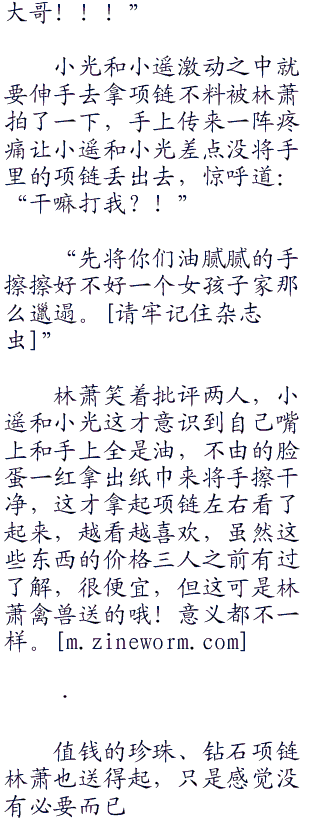 大哥！！！”
小光和小遥激动之中就
要伸手去拿项链不料被林萧
拍了一下，手上传来一阵疼
痛让小遥和小光差点没将手
里的项链丢出去，惊呼道：
“干嘛打我？！”
“先将你们油腻腻的手
擦擦好不好一个女孩子家那
么邋遢。[请牢记住杂志
虫]”
林萧笑着批评两人，小
遥和小光这才意识到自己嘴
上和手上全是油，不由的脸
蛋一红拿出纸巾来将手擦干
净，这才拿起项链左右看了
起来，越看越喜欢，虽然这
些东西的价格三人之前有过
了解，很便宜，但这可是林
萧禽兽送的哦！意义都不一
样。[m.zineworm.com]
.
值钱的珍珠、钻石项链
林萧也送得起，只是感觉没
有必要而已